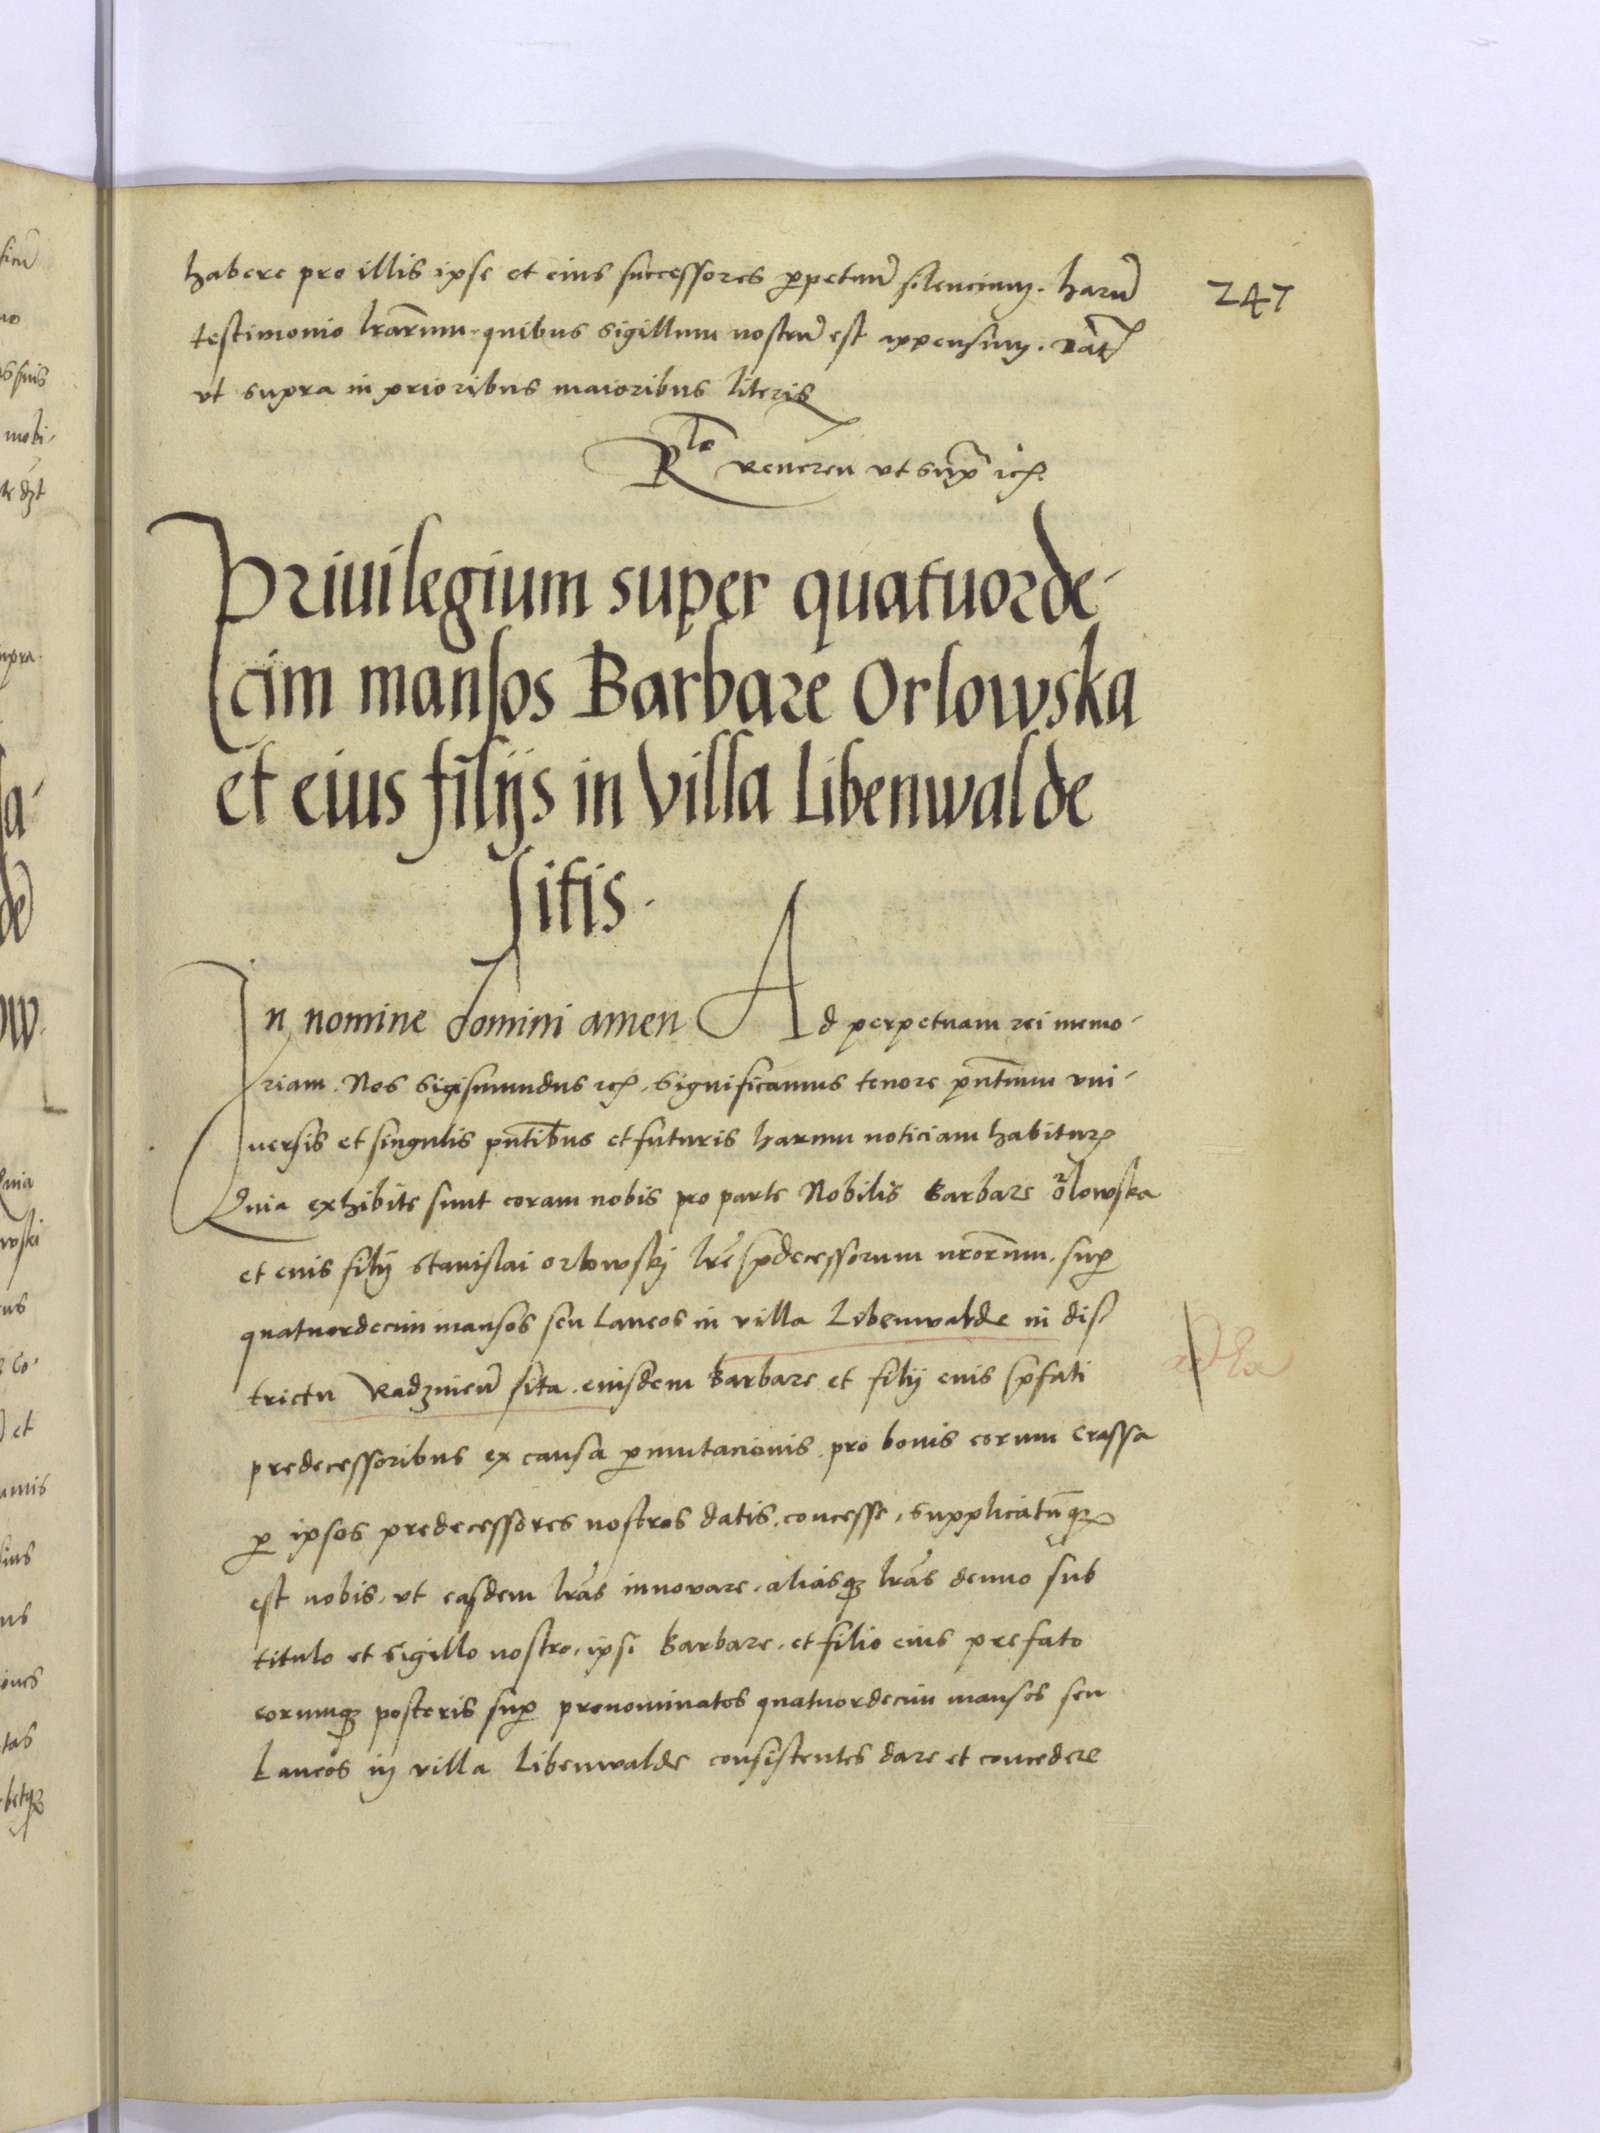 247
habere pro illis ipse et eius successores ꝑpetuū silencium. harū
testimonio lr̄arum quibus sigillum nostrū est appensum. Dat̄
vt supra in prioribus maioribus literis
R̄lo veneren vt sup̄
Priuilegium super quatuorde-
cim mansos Barbare Orlowska
et eius filijs in villa Libenwalde
sitis.
In nomine domini amen Ad perpetuam rei memo-
riam. Nos Sigismundus rcꝭ. significamus tenore pn̄tium vni-
uersis et singulis pn̄tibus et futuris harum noticiam habiturꝭ
Quia exhibite sunt coram nobis pro parte Nobilis Barbare Orlowska
et euis filij Stanislai Orlowskj lr̄e p̄decessorum nr̄orum. suꝑ
quatuordecim mansos seu laneos in villa Libenwalde in dis-
trictu Radzinen̄ sita. eiusdem Barbare et filij euis p̄fati
predecessoribus ex causa ꝑmutacionis pro bonis eorum Crassa
ꝑ ipsos predecessores nostros datis. concesse, supplicatūqꝫ
est nobis, vt easdem lr̄as innovare, aliasqꝫ lr̄as denuo sub
titulo et sigillo nostro, ipsi Barbare, et filio eius prefato
eorumqꝫ posteris suꝑ prenominatos quatuordecim mansos seu
Laneos in villa Libenwalde consistentes dare et concedere